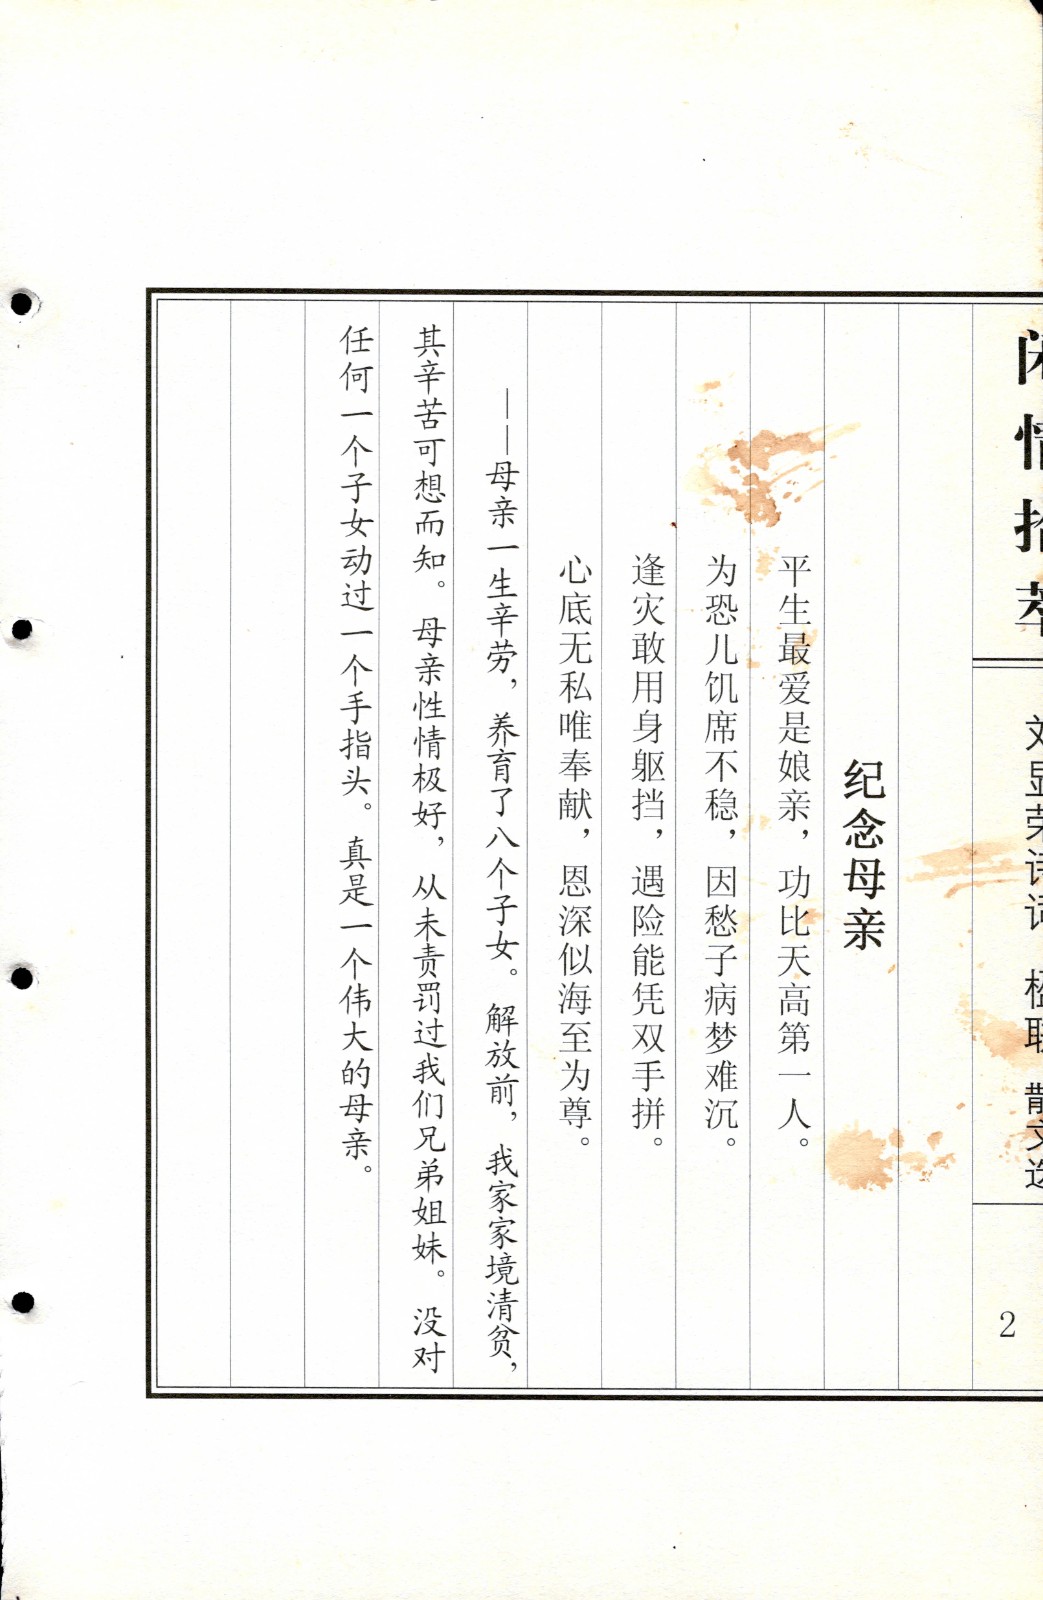 闲情拾萃
刘显荣诗词 楹联 散文选
2
纪念母亲
平生最爱是娘亲，功比天高第一人。
为恐儿饥席不稳，因愁子病梦难沉。
逢灾敢用身躯挡，遇险能凭双手拼。
心底无私唯奉献，恩深似海至为尊。
——母亲一生辛劳，养育了八个子女。解放前，我家家境清贫，
其辛苦可想而知。母亲性情极好，从未责罚过我们兄弟姐妹。没对
任何一个子女动过一个手指头。真是一个伟大的母亲。